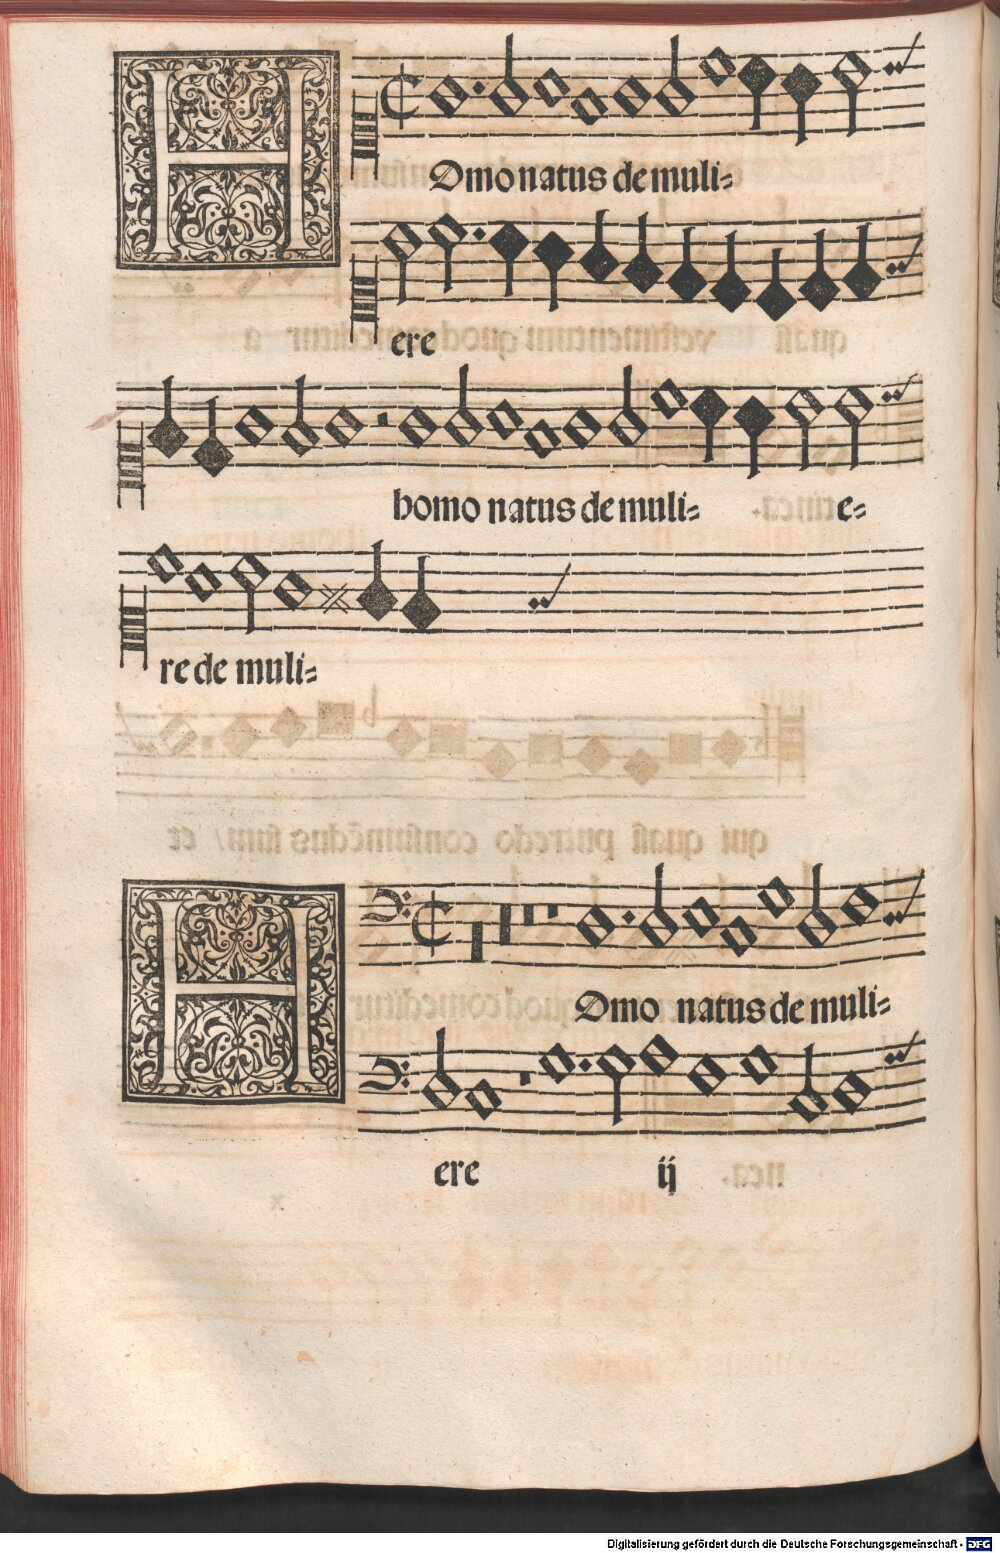 HOmo natus de muli=
ere
homo natus de muli= e=
re de muli=
HOmo natus de muli=
ere ij
Digitalisierung gefördert durch die Deutsche Forschungsgemeinschaft - DFG